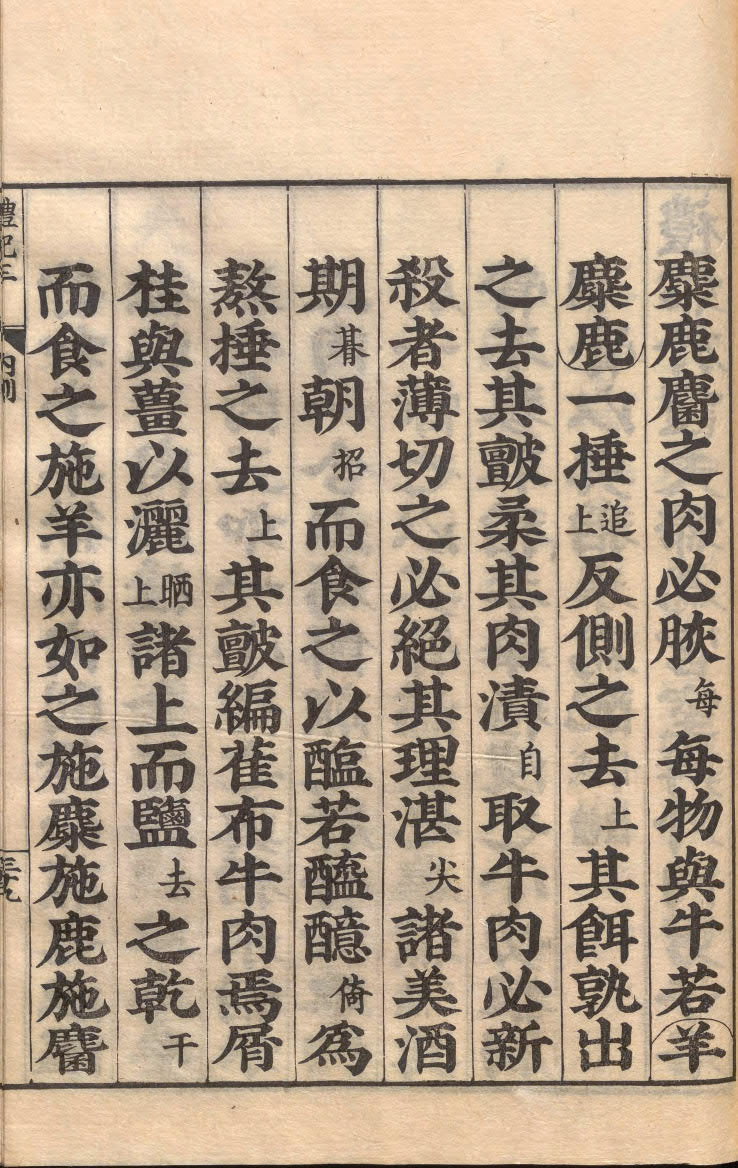 麋鹿麕之肉必脄每每物與牛若羊
麋鹿一捶追上反側之去上其餌孰出
之去其皽柔其肉漬自取牛肉必新
殺者薄切之必絕其理湛尖諸美酒
期朞朝招而食之以醢若醯醷倚爲
熬捶之去上其皽編萑布牛肉焉屑
桂與薑以灑晒上諸上而鹽去之乾干
而食之施羊亦如之施麋施鹿施麕
禮記三 內則